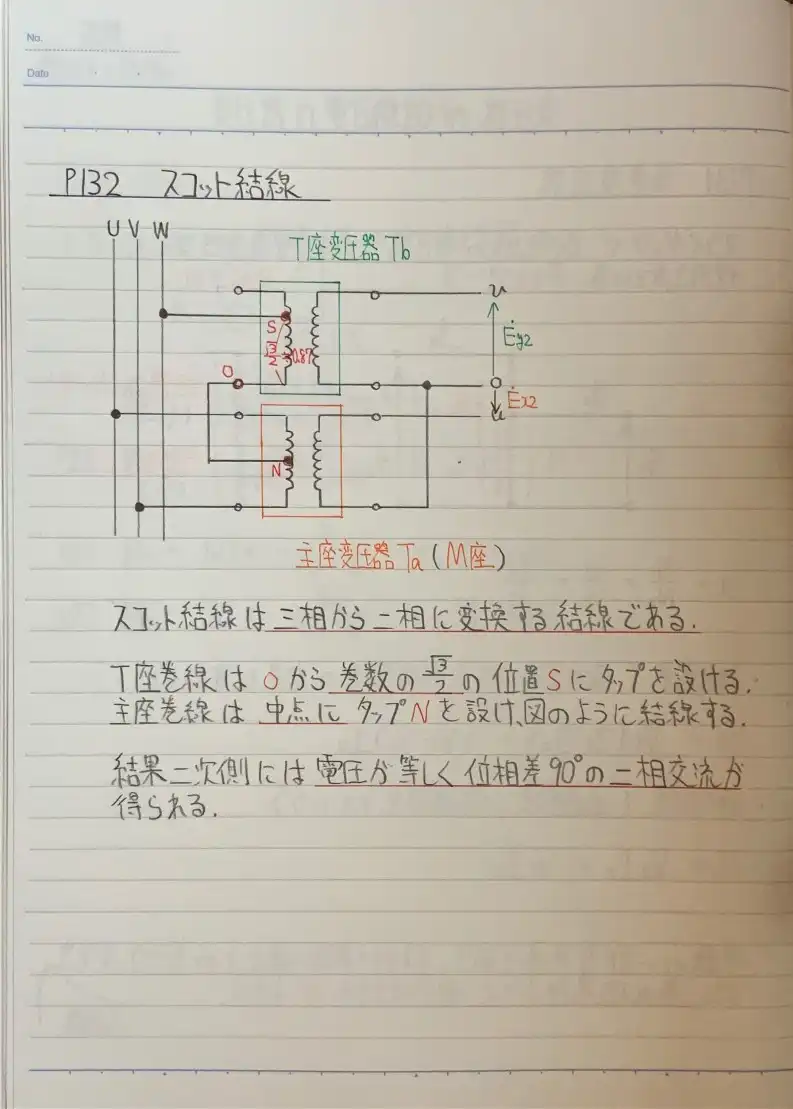 No.
Date
P132 スコット結線
U V W
T座変圧器 Tb
S
√3/2 ≒0.87
O
v
Ėy2
o
Ėx2
u
N
主座変圧器 Ta (M座)
スコット結線は三相から二相に変換する結線である.
T座巻線は Oから巻数の √3/2 の 位置Sに タップを設ける.
主座巻線は 中点に タップNを設け、図のように結線する.
結果二次側には電圧が等しく位相差90°の二相交流が
得られる.